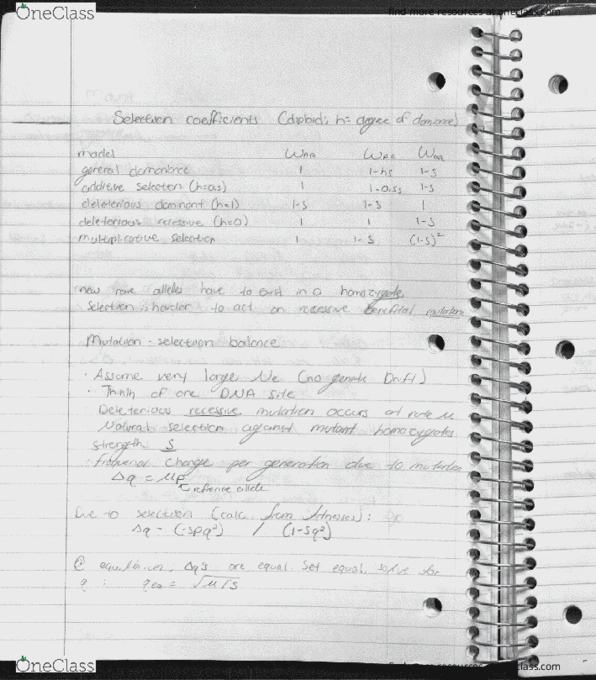 OneClass
find more resources at oneclass.com
Selection coefficients (diploid; h = degree of dominance)
model W_AA W_Aa W_aa
general dominance 1 1-hs 1-s
additive selection (h=0.5) 1 1-0.5s 1-s
deleterious dominant (h=1) 1-s 1-s 1
deleterious recessive (h=0) 1 1 1-s
multiplicative selection 1 1-s (1-s)²
new rare alleles have to exist in a homozygote
Selection is harder to act on recessive beneficial mutations
Mutation-selection balance
· Assume very large Ne (no genetic Drift)
· Think of one DNA site
Deleterious recessive mutation occurs at rate μ
Natural selection against mutant homozygotes
strength s
· Frequency change per generation due to mutation
Δq = μp
reference allele
Due to selection (calc from fitnesses):
Δq = (-spq²) / (1-sq²)
@ equilibrium, Δq's are equal. Set equal, solve for
q : q_eq = √μ/s
OneClass
find more resources at oneclass.com